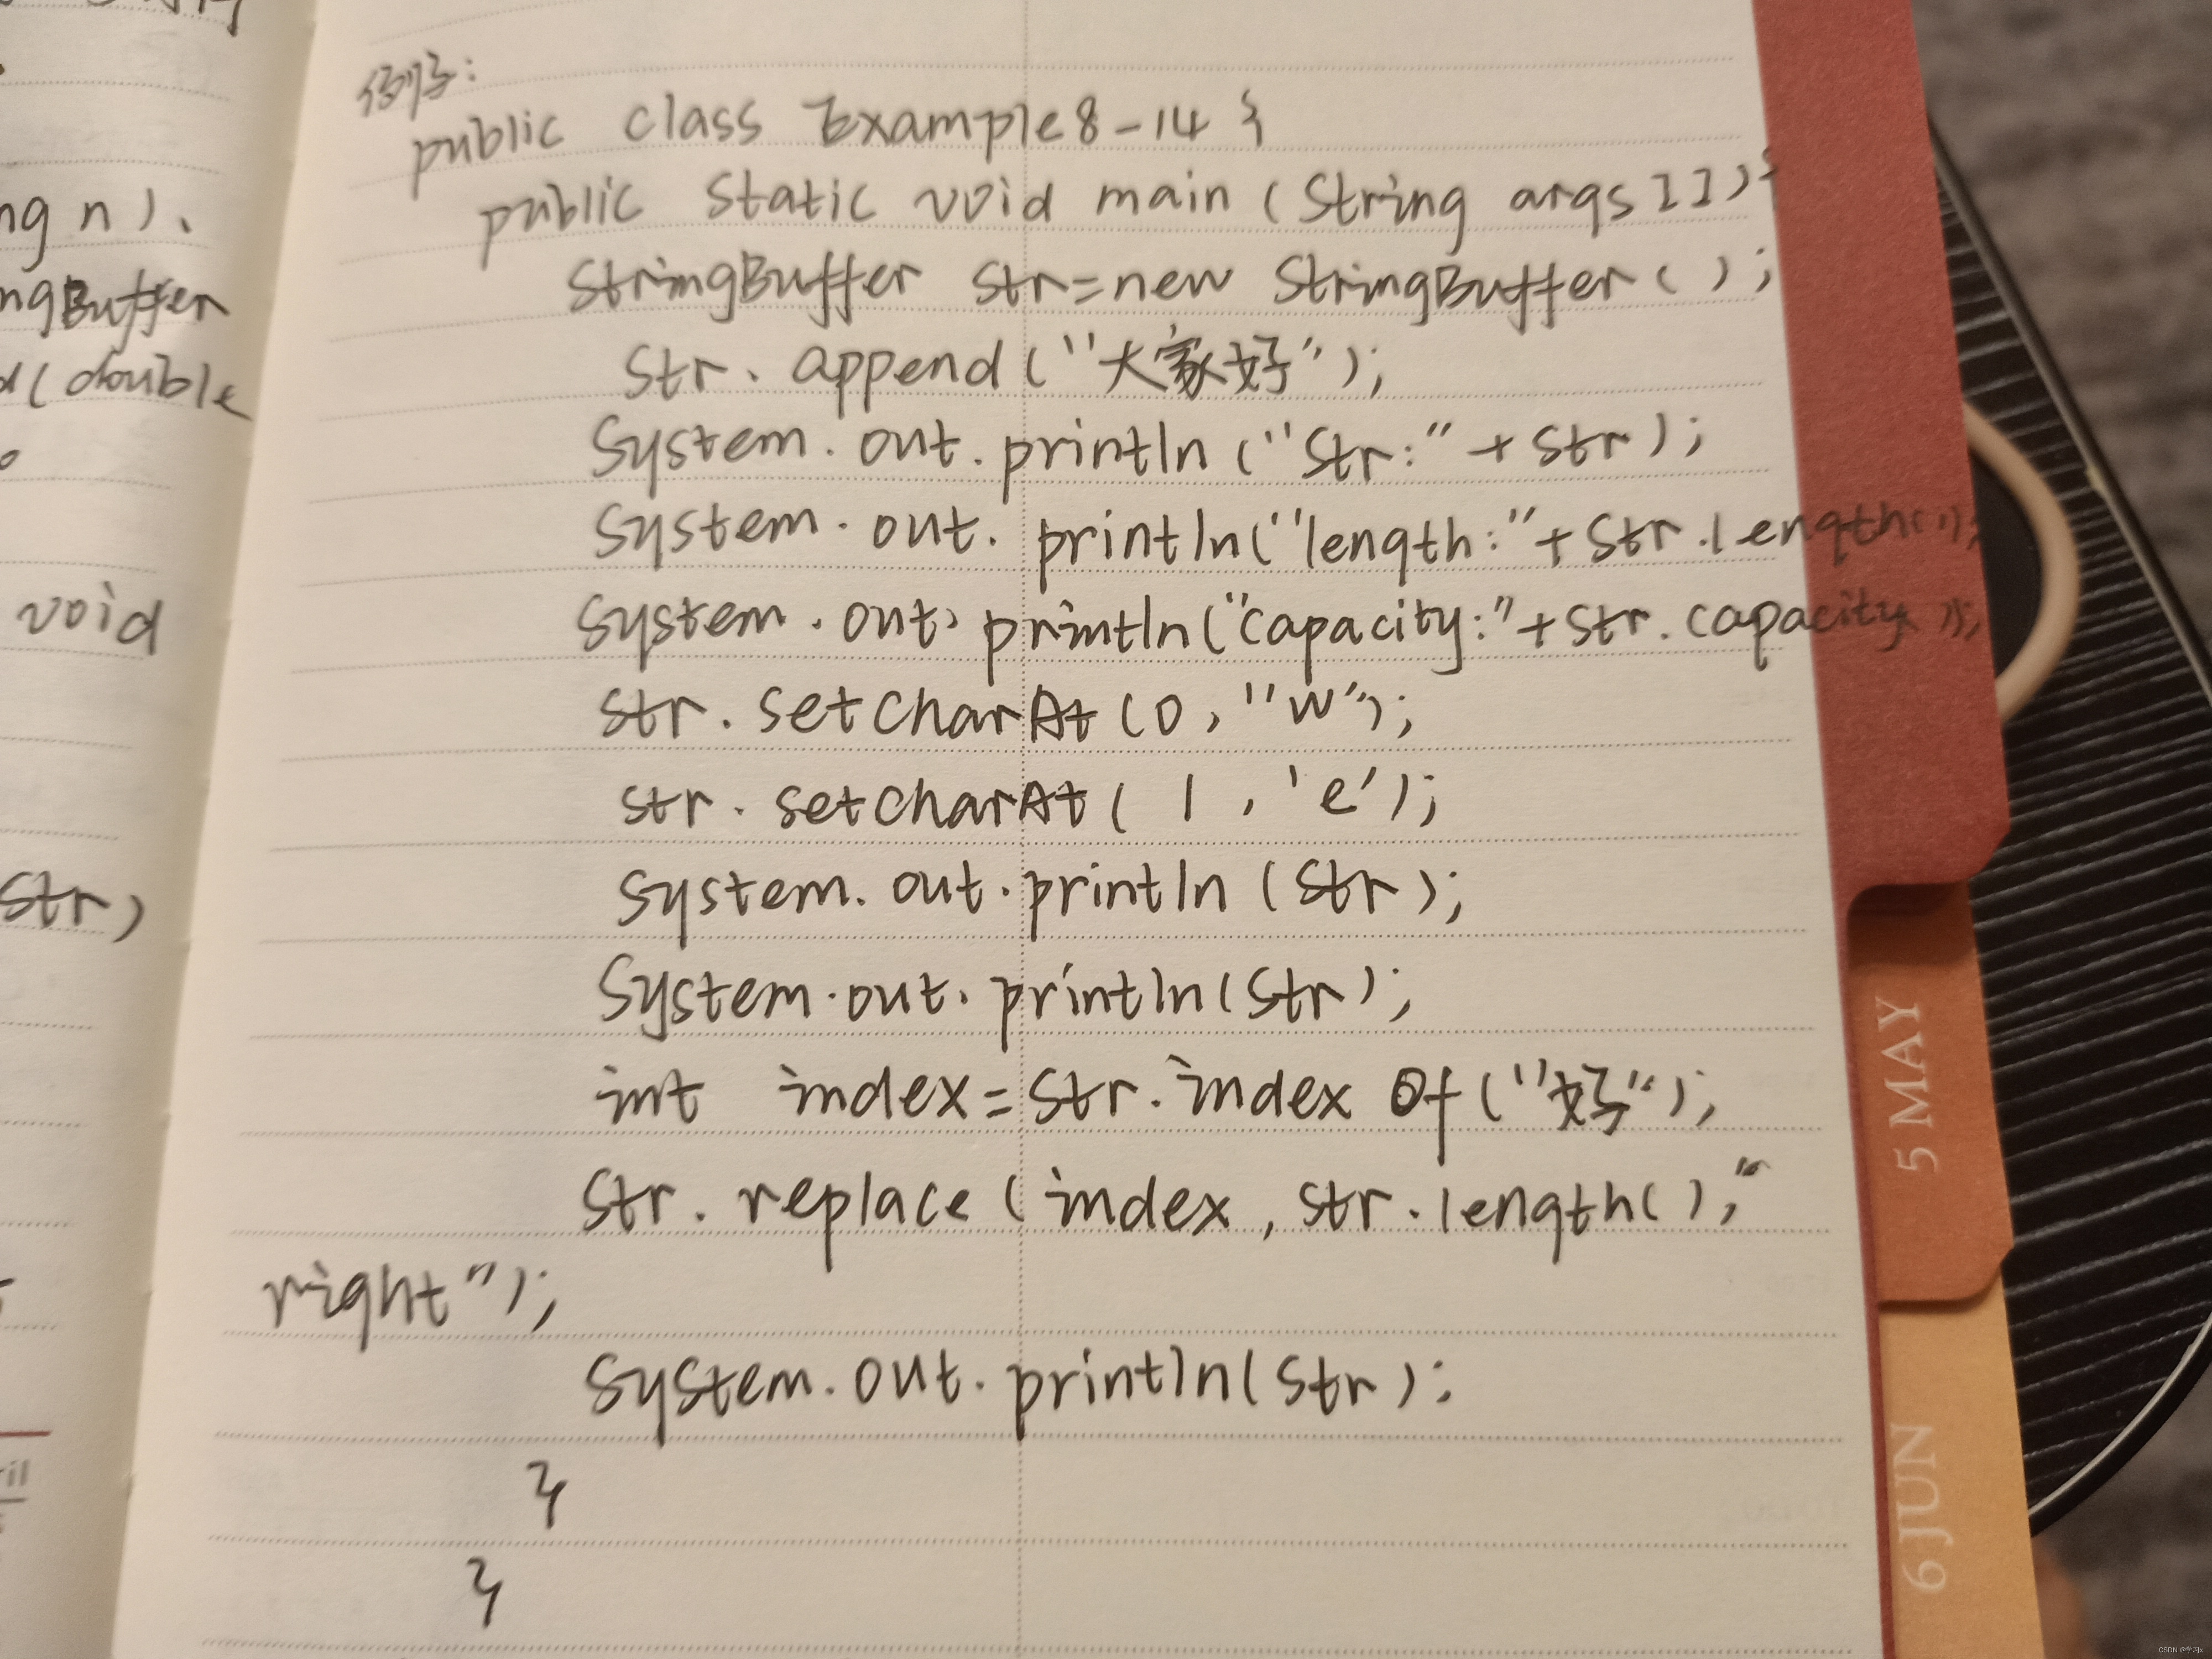 ng n)、
ngBuffer
d(double
void
str)
例子:
public class Example8-14 {
public static void main (String args[]){
StringBuffer str=new StringBuffer();
str. append("大家好");
System. out. println ("str:" + str);
System. out. println("length:"+str.length());
System. out. println("capacity:"+str. capacity ));
str. setCharAt (0, "w");
str. setCharAt( 1, 'e');
System. out. println (str);
System. out. println(str);
int index=str. index Of ("好");
str. replace (index, str. length(), "
right");
System. out. println(str);
}
}
5 MAY
6 JUN
CSDN @学习x